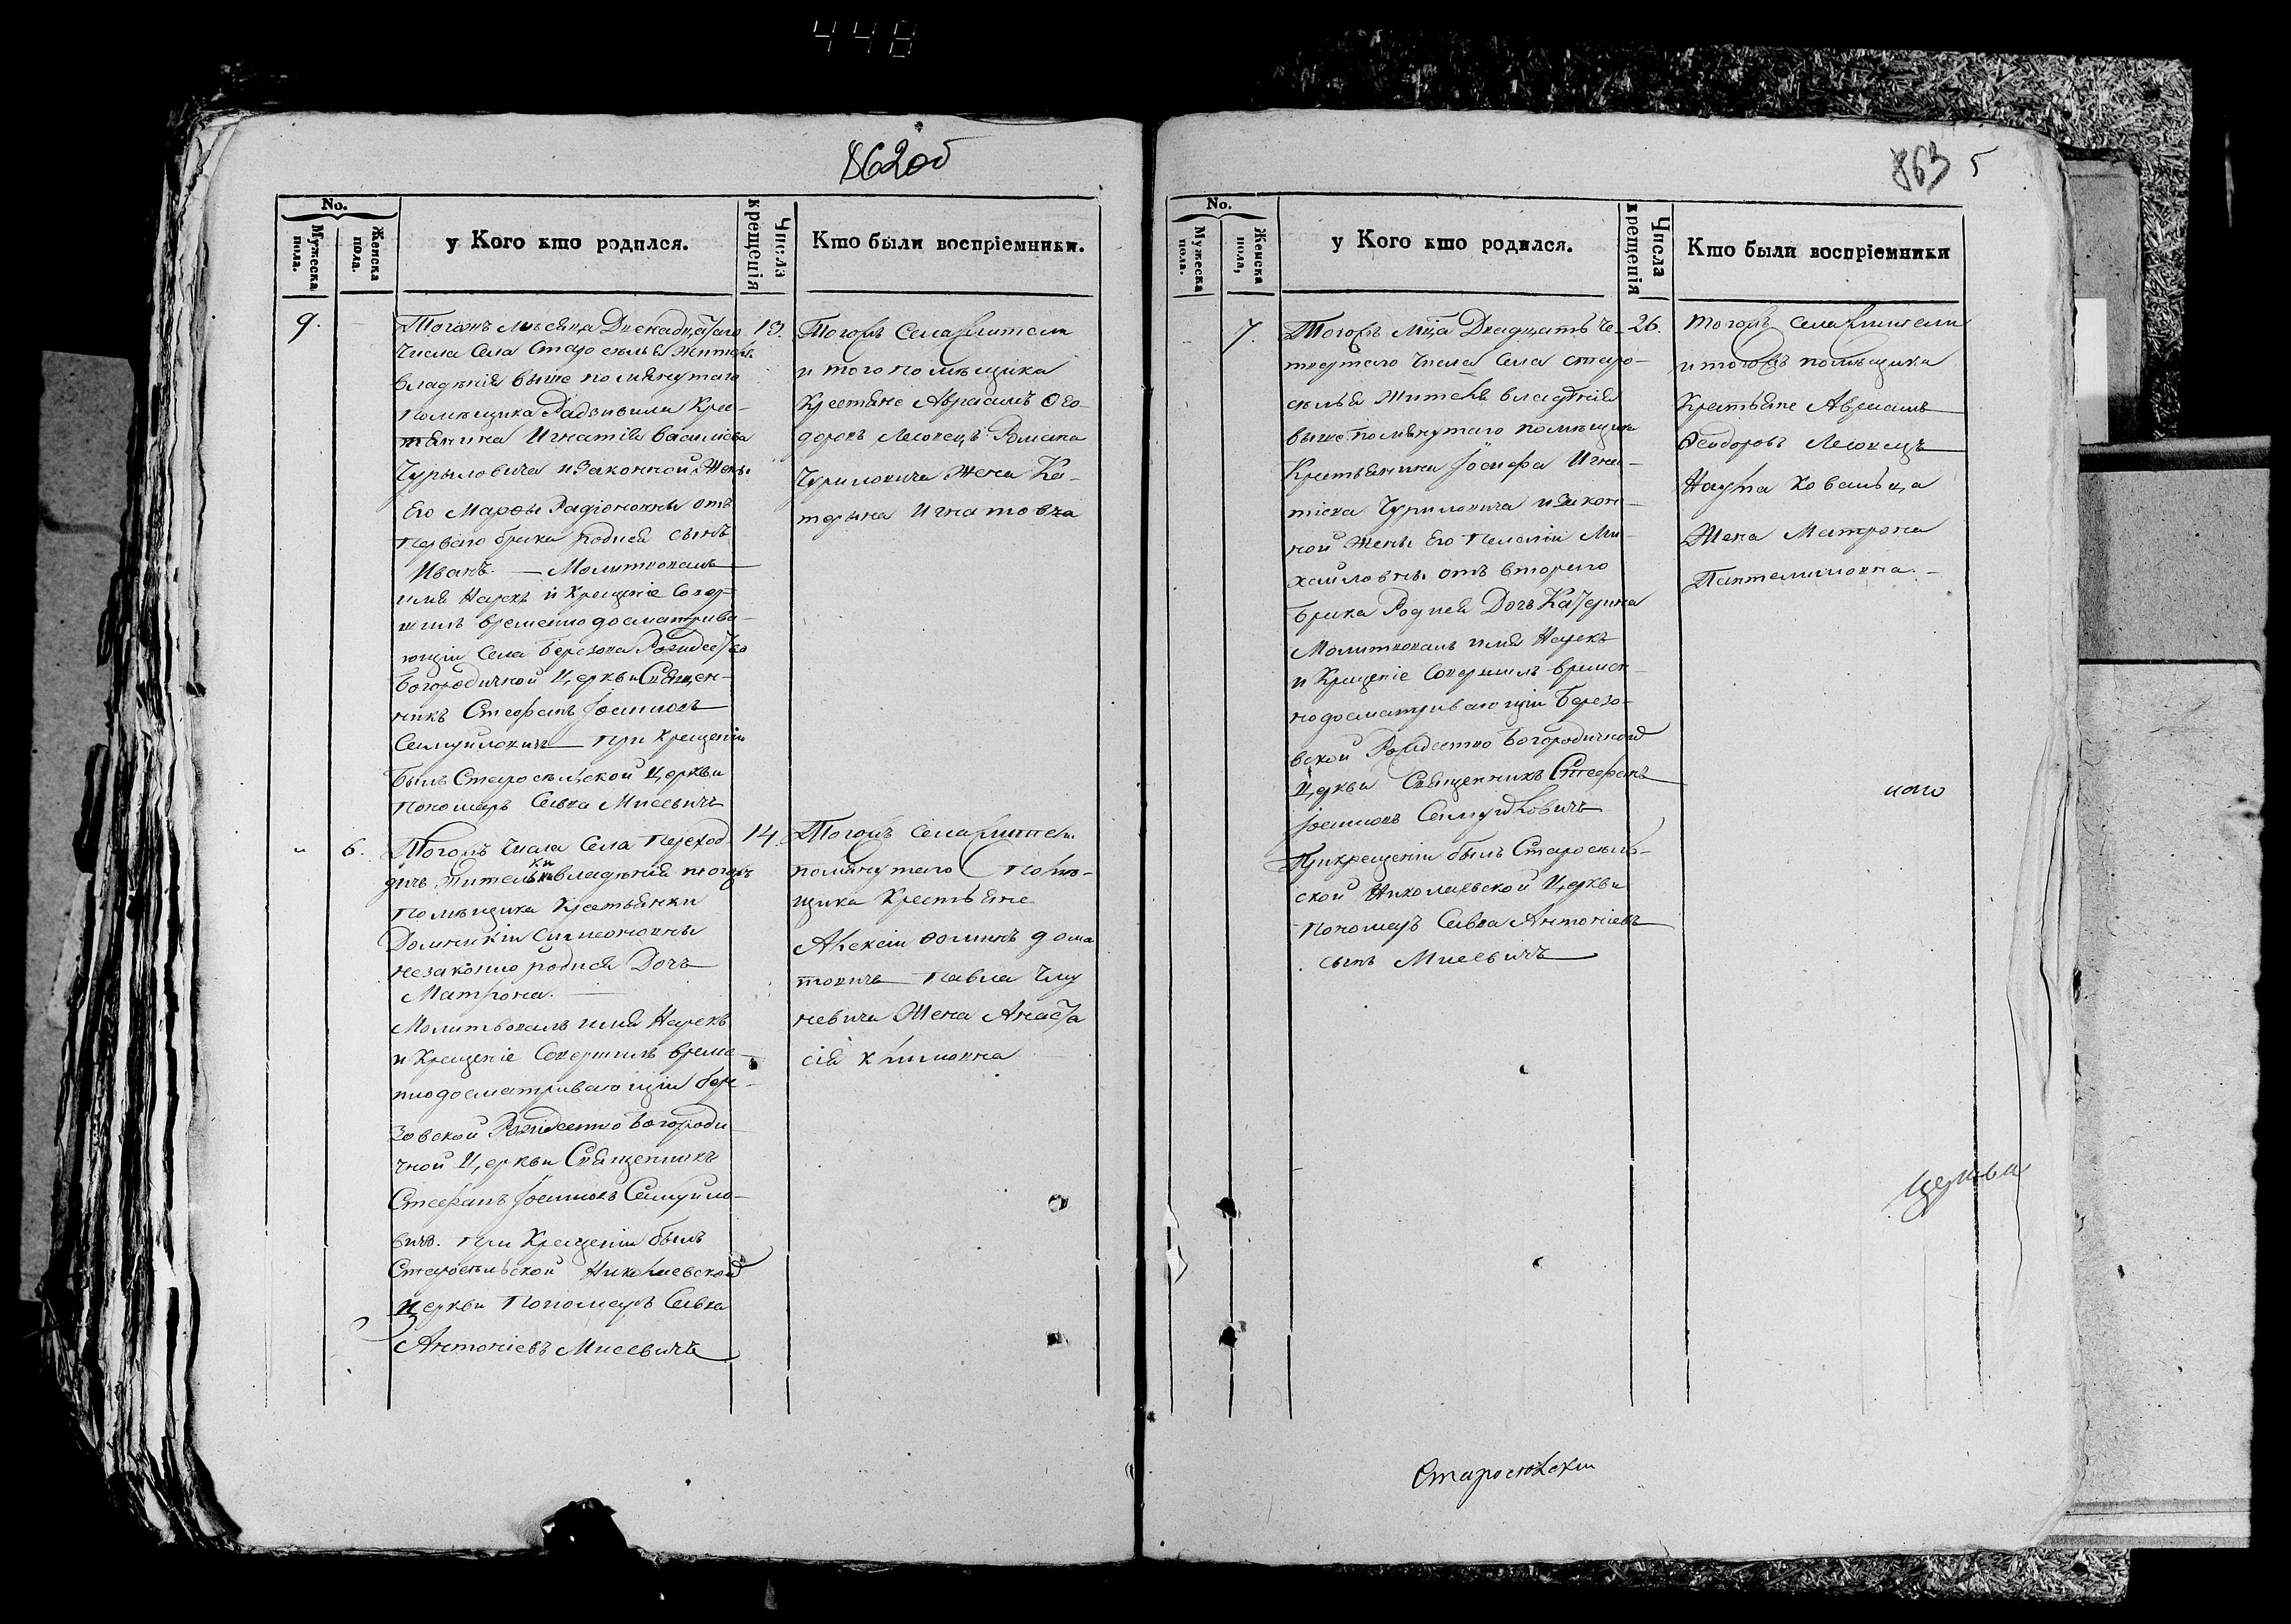 448
862об
No.
Мужеска пола.
Женска пола.
у Кого кто родился.
Числа крещенія
Кто были воспріемники.
9.
Тогожъ месяца
числа Села Старо селья жителя
владенія выше помянутаго
помещика Радзивила Крес-
тянина Игнатія Василіева
Чурыловича и Законной Жены
Его Марфы Радіоновны отъ
перваго брака родися сынъ
Иванъ. — Молитвовалъ
имя Нарекъ и Крещеніе Совер-
шилъ временно досматрива-
ющіи Села Березова Рождество
Богородичной Церкви Священ-
никъ Стефанъ Іоанновъ
Самуиловичъ при Крещеніи
былъ Старосельской Церкви
Пономаръ Савва Мисевичъ
13.
Тогожъ Села жители
и того помещика
Крестяне Авраамъ Ѳео-
доровъ Лесовецъ Романа
Чуриловича Жена Ка-
терына Игнатовна
6.
Тогожъ Числа Села Переход-
ичъ Жительки владенія тогожъ
Помещика Крестьянки
Доминикіи Симеоновны
незаконно родися Дочъ
Матрона.
Молитвовалъ имя Нарекъ
и Крещеніе Совершилъ време-
нно досматривающіи Бере-
зовской Рождество Богороди-
чной Церкви Священникъ
Стефанъ Іоанновъ Самуило-
вичъ. при Крещеніи былъ
Старосельской Николаевской
Церкви Пономаръ Савва
Антоніевъ Мисевичъ
14.
Тогожъ Села жители
помянутаго Поме-
щика Крестьяне
Алексіи Ѳоминъ Дома
товичъ Павла
невича Жена Анаста
сія Климовна
863
5
No.
Мужеска пола.
Женска пола,
у Кого кто родился.
Числа крещенія
Кто были воспріемники
7.
Тогожъ Мца Двадцатъ Че-
твертаго Числа Села Старо-
селья Жителя владенія
выше помянутаго помещика
Крестьянина Іосифа Игна-
тіева Чуриловича и Закон-
ной Жены Его Пелагіи Ми-
хайловны отъ втораго
брака Родися Дочъ Катерина
Молитвовалъ имя Нарекъ
и Крещеніе Совершилъ времен-
но досматривающіи Березо-
вской Рождество Богородичной
Церкви Священникъ Стефанъ
Іоанновъ Самуйловичъ
При крещеніи былъ Старосель-
ской Николаевской Церкви
Пономаръ Савва Антоніевъ
сынъ Мисевичъ
26.
Тогожъ Села жители
и тогожъ помещика
Крестьяне Авраамъ
Ѳеодоровъ Лесовецъ
Наума Ковальца
Жена Матрона
Пантелимовна. —
церкви